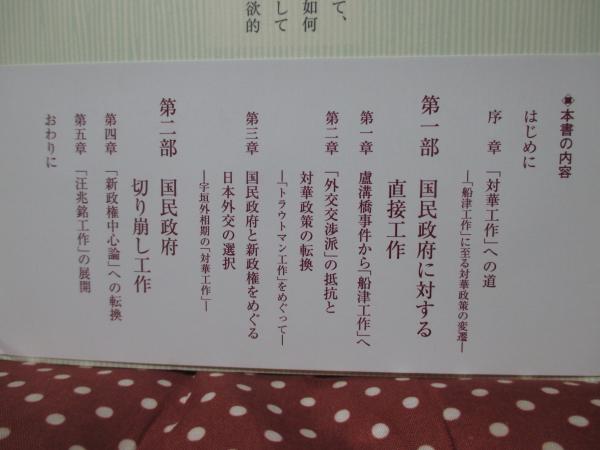 て、
如何
して
欲的
本書の内容
はじめに
序 章 「対華工作」への道
―「船津工作」に至る対華政策の変遷―
第一部 国民政府に対する
直接工作
第一章 盧溝橋事件から「船津工作」へ
第二章 「外交交渉派」の抵抗と
対華政策の転換
―「トラウトマン工作」をめぐって―
第三章 国民政府と新政権をめぐる
日本外交の選択
―宇垣外相期の「対華工作」―
第二部 国民政府
切り崩し工作
第四章 「新政権中心論」への転換
第五章 「汪兆銘工作」の展開
おわりに